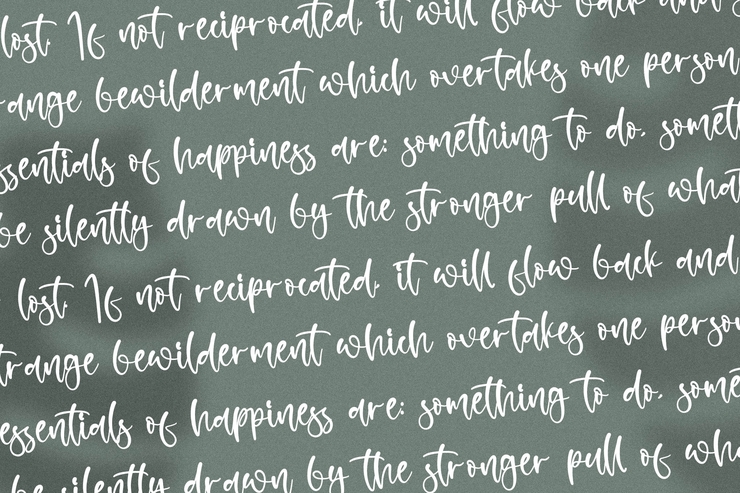 lost. If not reciprocated, it will flow back and
range bewilderment which overtakes one person
ssentials of happiness are: something to do, somet
be silently drawn by the stronger pull of what
lost. If not reciprocated, it will flow back and
trange bewilderment which overtakes one person
essentials of happiness are: something to do, some
be silently drawn by the stronger pull of wha